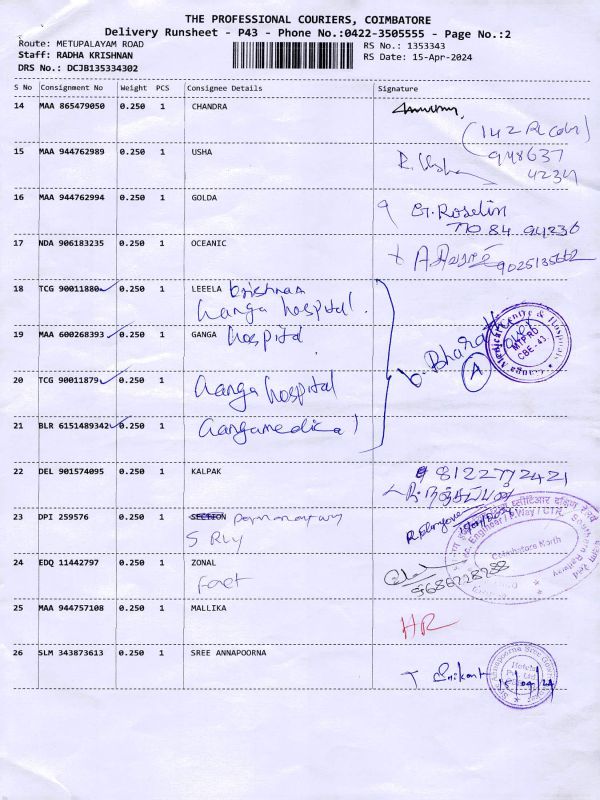 THE PROFESSIONAL COURIERS, COIMBATORE
Delivery Runsheet - P43 - Phone No.:0422-3505555 - Page No.:2
Route: METUPALAYAM ROAD
Staff: RADHA KRISHNAN
DRS No.: DCJB135334302
RS No.: 1353343
RS Date: 15-Apr-2024
S No Consignment No Weight PCS Consignee Details Signature
14 MAA 865479050 0.250 1 CHANDRA
15 MAA 944762989 0.250 1 USHA R. Usha
948637
4234
16 MAA 944762994 0.250 1 GOLDA G. Roselin
no 84. 94236
17 NDA 906183235 0.250 1 OCEANIC 9025135662
18 TCG 90011880 0.250 1 LEEELA Krishnan
Ganga hospital.
19 MAA 600268393 0.250 1 GANGA hospital b. Bharath
A
MTPRD
CBE-43
20 TCG 90011879 0.250 1 Ganga hospital
21 BLR 6151489342 0.250 1 Ganga medical
22 DEL 901574095 0.250 1 KALPAK 8122772421
23 DPI 259576 0.250 1 SECTION
S Rly
Coimbatore North
24 EDQ 11442797 0.250 1 ZONAL
Fact
9688728788
25 MAA 944757108 0.250 1 MALLIKA HR
26 SLM 343873613 0.250 1 SREE ANNAPOORNA T Srikanth
15/04/24